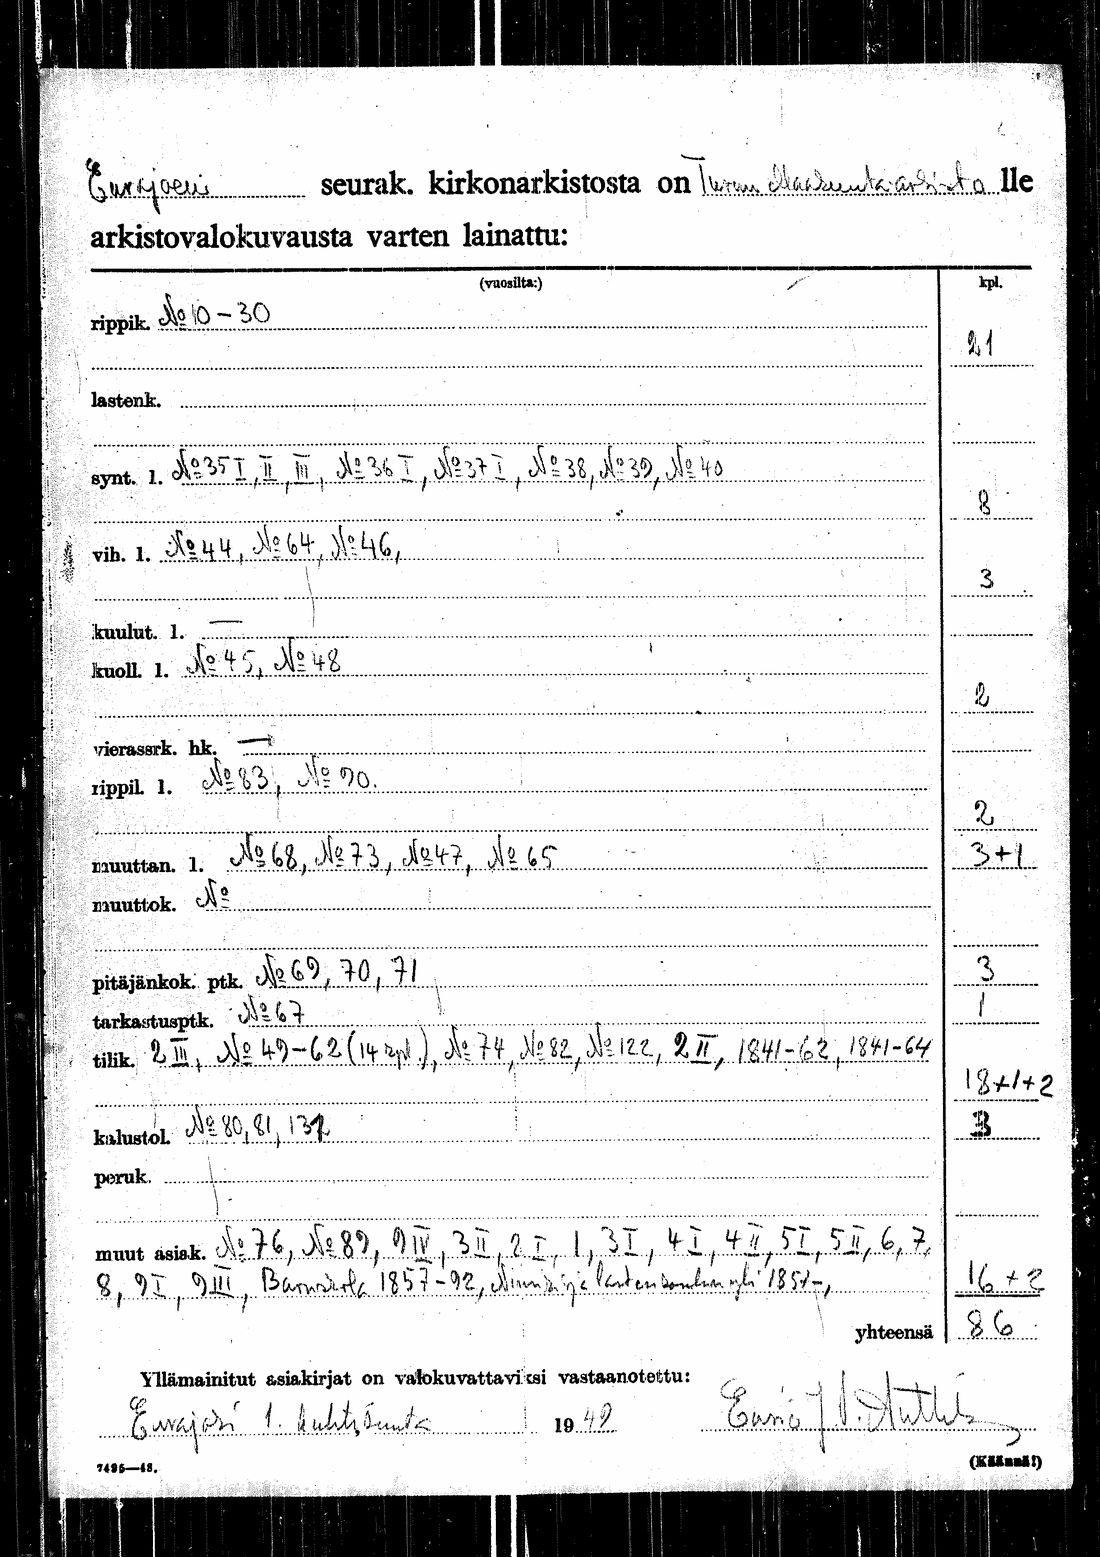 Eurajoen seurak. kirkonarkistosta on Turun Maakunta-arkisto lle
arkistovalokuvausta varten lainattu:
(vuosilta:) kpl.
rippik. № 10-30
21
lastenk.
synt. l. № 35 I, II, III, № 36 I, № 37 I, № 38, № 39, № 40
8
vih. l. № 44, № 64, № 46,
3
kuulut. l. —
kuoll. l. № 45, № 48
2
vierassrk. hk. —
rippil. l. № 83, № 90.
2
muuttan. l. № 68, № 73, № 47, № 65 3+1
muuttok. №
pitäjänkok. ptk. № 69, 70, 71 3
tarkastusptk. № 67 1
tilik. 2 III, № 49-62 (14 kpl.), № 74, № 82, № 122, 2 II, 1841-62, 1841-64
18+1+2
kalustol. № 80, 81, 132 3
peruk.
muut asiak. № 76, № 89, 9 IV, 3 II, 2 I, 1, 3 I, 4 I, 4 II, 5 I, 5 II, 6, 7,
8, 9 I, 9 III, Barnskola 1857-92, 1851-, 16+2
yhteensä 86
Yllämainitut asiakirjat on valokuvattaviksi vastaanotettu:
Eurajoki 1. huhtikuuta 1949
7495—48. (Käännä!)